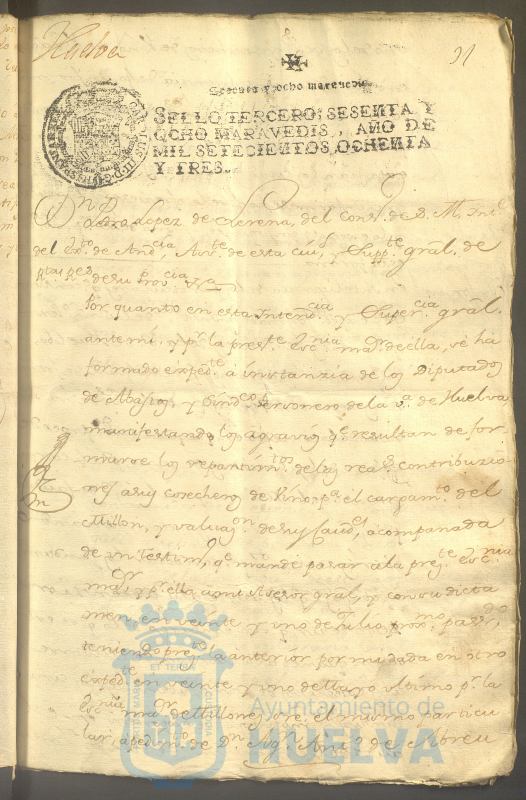 Huelva
91
Sesenta y ocho maravedis
SELLO TERCERO; SESENTA Y
OCHO MARAVEDIS, AÑO DE
MIL SETECIENTOS, OCHENTA
Y TRES.
Dn. Pedro Lopez de Lerena, del Consº. de S. M. Intte.
del Exto. de Andcia, Asste. de esta ciud. y Suppte. gral. de
Rtas Rs. de su Provcia &a.
Por quanto en esta Intendcia y Supercia gral.
antemi, y pr. la preste. Escnia mar. de ella, se ha
formado expedte. a instanzia de los Diputados
de Abastos, y Sindco. Personero de la va. de Huelva
manifestando los agravios qe. resultan de for
marse los repartimtos. de las reas. contribuzio
nes a sus Cosecheros de Vino pa. el cargamto. del
Millon, y valuaon. de sus Caudes, acompañada
de un Testimo. qe. mandé pasar a la preste. Escnia
mar. y pr. ella a mi Asesor gral, y con su dicta
men, en veinte y uno de Julio proxmo. pasado,
teniendo preste. la anterior por mi dada en otro
expedte. en veinte y uno de Mayo ultimo pr. la
Escnia mar. de Millones, sobre el mismo particu
lar, a pedimto. de Dn. Antº. de Abreu
Ayuntamiento de
HUELVA